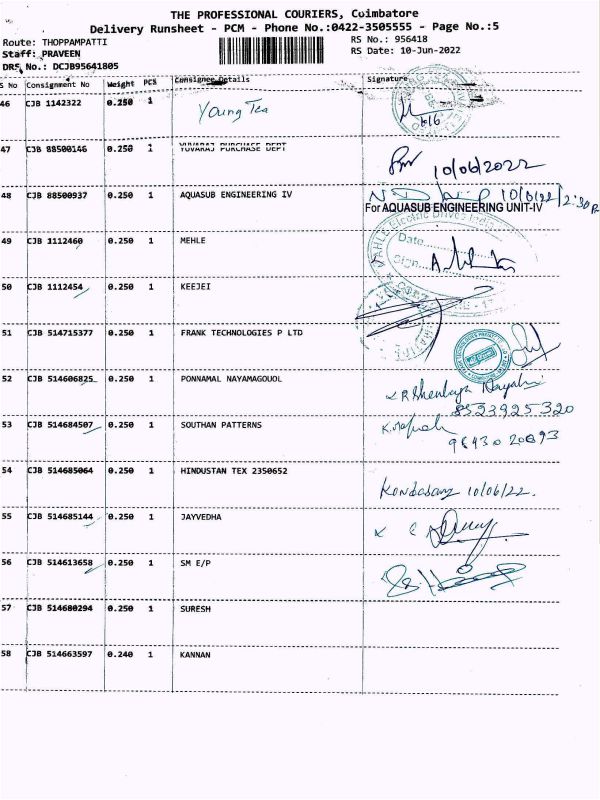 THE PROFESSIONAL COURIERS, Coimbatore
Delivery Runsheet - PCM - Phone No.:0422-3505555 - Page No.:5
Route: THOPPAMPATTI
RS No.: 956418
Staff: PRAVEEN
RS Date: 10-Jun-2022
DRS No.: DCJB95641805
S No Consignment No Weight PCS Consignee Details Signature
46 CJB 1142322 0.250 1 Young Tex
47 CJB 88500146 0.250 1 YUVARAJ PURCHASE DEPT
10/06/2022
48 CJB 88500937 0.250 1 AQUASUB ENGINEERING IV
10/6/22/2:30 P
For AQUASUB ENGINEERING UNIT-IV
49 CJB 1112460 0.250 1 MEHLE
Date
Sign
50 CJB 1112454 0.250 1 KEEJEI
51 CJB 514715377 0.250 1 FRANK TECHNOLOGIES P LTD
52 CJB 514606825 0.250 1 PONNAMAL NAYAMAGOUOL
8523925320
53 CJB 514684507 0.250 1 SOUTHAN PATTERNS
54 CJB 514685064 0.250 1 HINDUSTAN TEX 2350652
10/06/22.
55 CJB 514685144 0.250 1 JAYVEDHA
56 CJB 514613658 0.250 1 SM E/P
57 CJB 514680294 0.250 1 SURESH
58 CJB 514663597 0.240 1 KANNAN